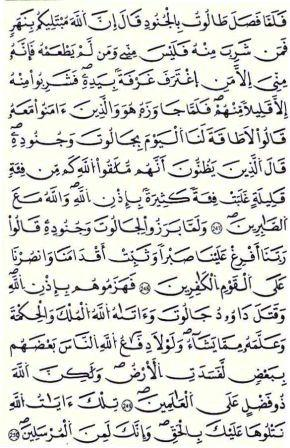 فَلَمَّا فَصَلَ طَالُوتُ بِالْجُنُودِ قَالَ إِنَّ اللَّهَ مُبْتَلِيكُم بِنَهَرٍ
فَمَن شَرِبَ مِنْهُ فَلَيْسَ مِنِّي وَمَن لَّمْ يَطْعَمْهُ فَإِنَّهُ
مِنِّي إِلَّا مَنِ اغْتَرَفَ غُرْفَةً بِيَدِهِ فَشَرِبُوا مِنْهُ
إِلَّا قَلِيلًا مِّنْهُمْ فَلَمَّا جَاوَزَهُ هُوَ وَالَّذِينَ ءَامَنُوا مَعَهُ
قَالُوا لَا طَاقَةَ لَنَا الْيَوْمَ بِجَالُوتَ وَجُنُودِهِ
قَالَ الَّذِينَ يَظُنُّونَ أَنَّهُم مُّلَٰقُوا اللَّهِ كَم مِّن فِئَةٍ
قَلِيلَةٍ غَلَبَتْ فِئَةً كَثِيرَةً بِإِذْنِ اللَّهِ وَاللَّهُ مَعَ
الصَّٰبِرِينَ ﴿٢٤٧﴾ وَلَمَّا بَرَزُوا لِجَالُوتَ وَجُنُودِهِ قَالُوا
رَبَّنَا أَفْرِغْ عَلَيْنَا صَبْرًا وَثَبِّتْ أَقْدَامَنَا وَانصُرْنَا
عَلَى الْقَوْمِ الْكَٰفِرِينَ ﴿٢٤٨﴾ فَهَزَمُوهُم بِإِذْنِ اللَّهِ
وَقَتَلَ دَاوُدُ جَالُوتَ وَءَاتَىٰهُ اللَّهُ الْمُلْكَ وَالْحِكْمَةَ
وَعَلَّمَهُ مِمَّا يَشَاءُ وَلَوْلَا دِفَٰعُ اللَّهِ النَّاسَ بَعْضَهُم
بِبَعْضٍ لَّفَسَدَتِ الْأَرْضُ وَلَٰكِنَّ اللَّهَ
ذُو فَضْلٍ عَلَى الْعَٰلَمِينَ ﴿٢٤٩﴾ تِلْكَ ءَايَٰتُ اللَّهِ
نَتْلُوهَا عَلَيْكَ بِالْحَقِّ وَإِنَّكَ لَمِنَ الْمُرْسَلِينَ ﴿٢٥٠﴾